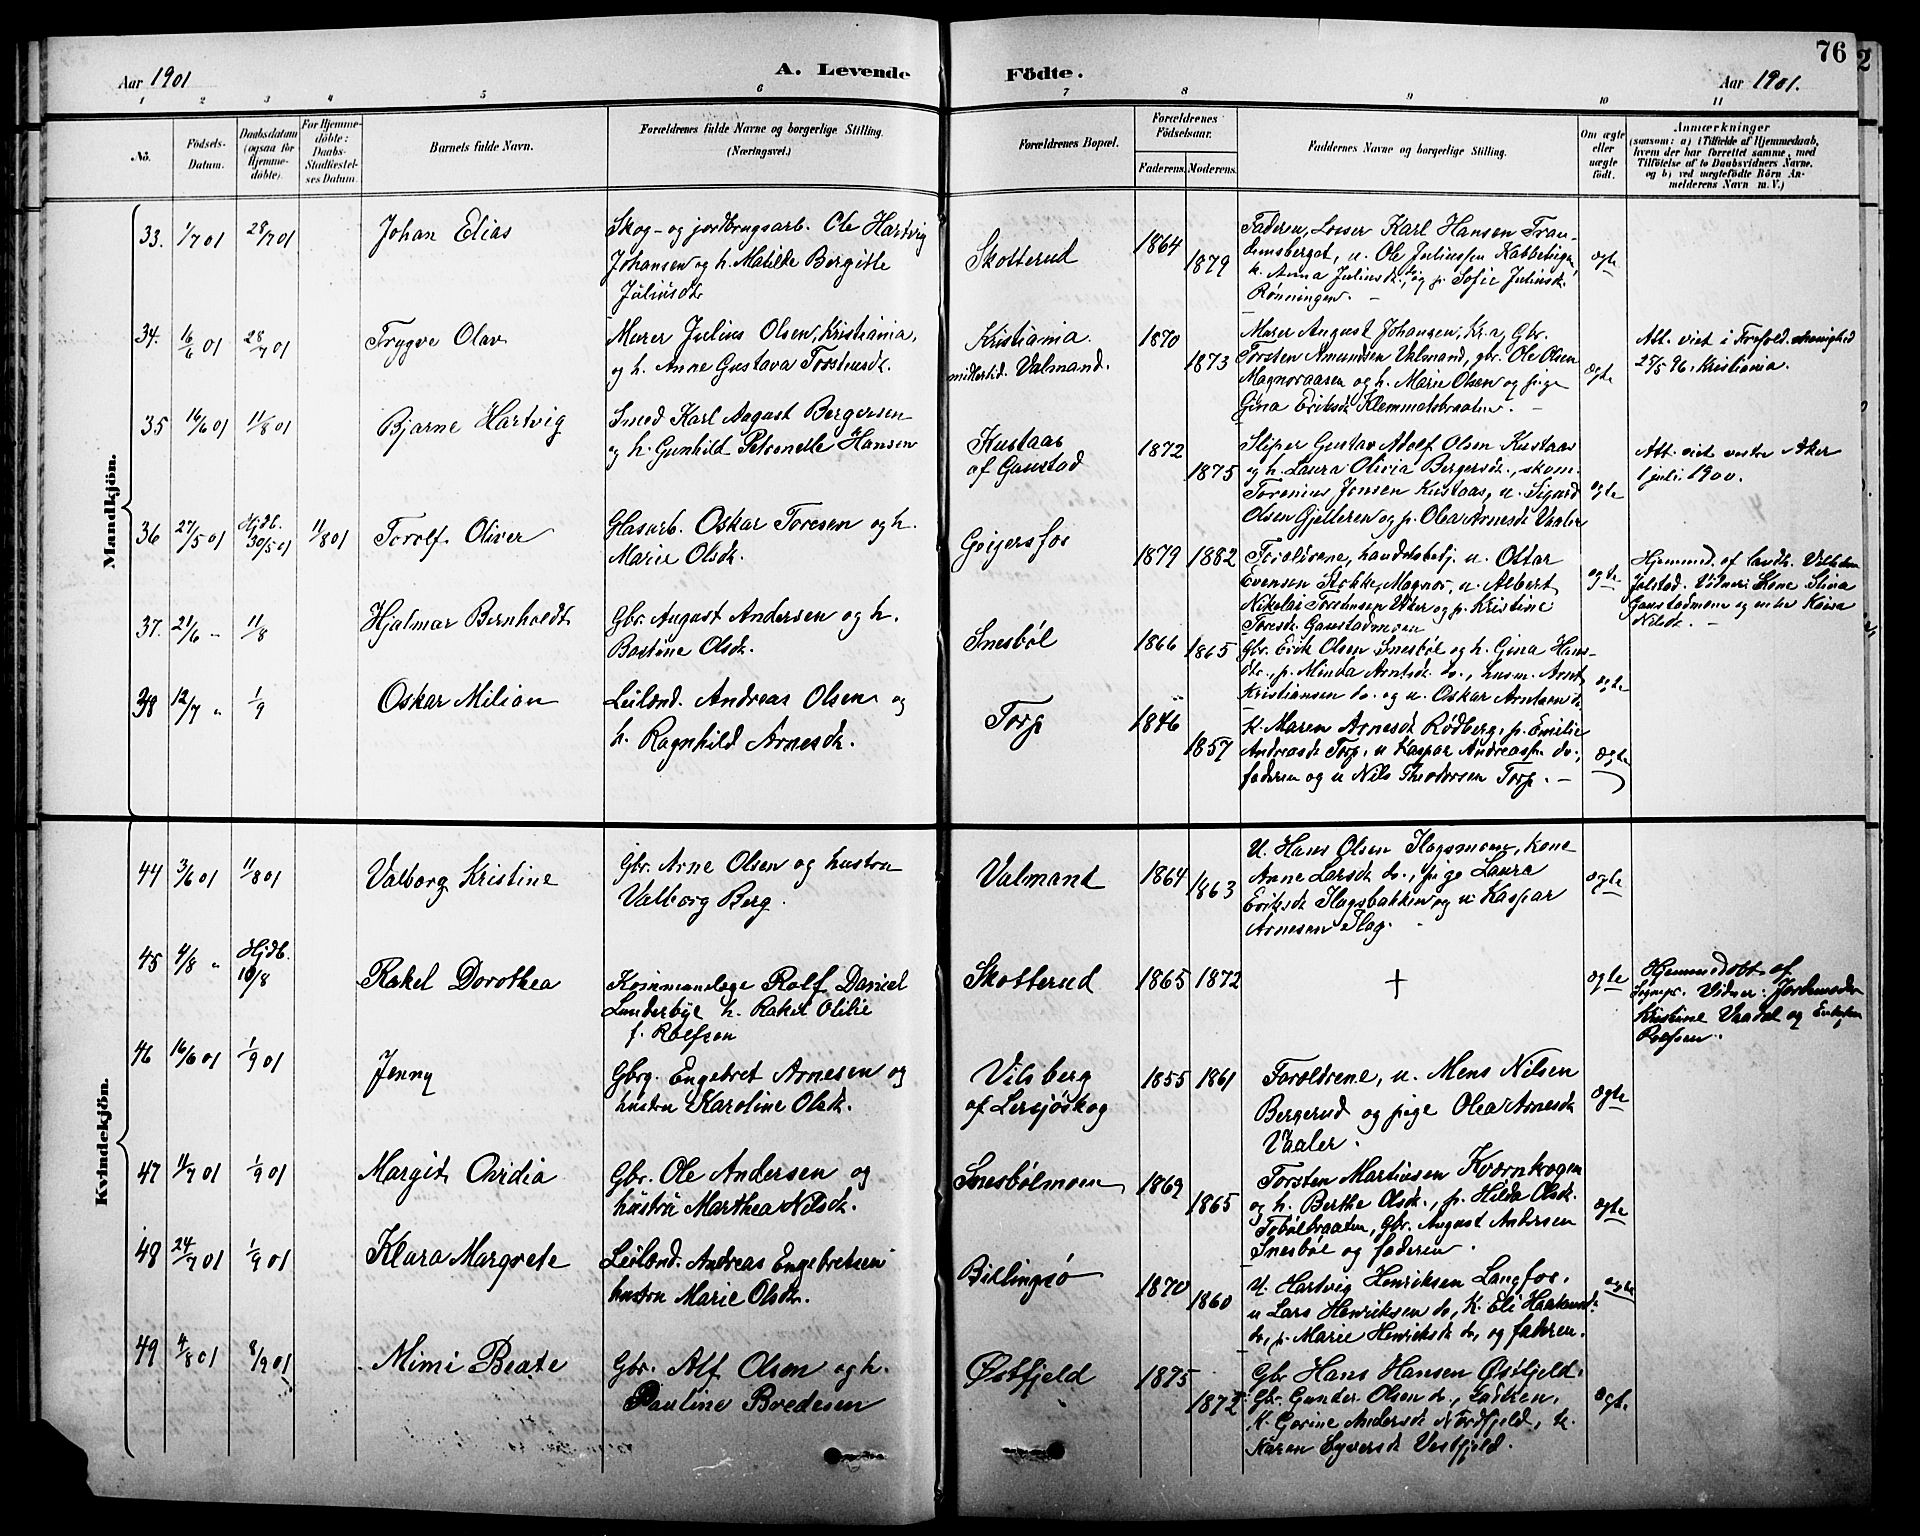 76
2
Aar 1901
A. Levende
Födte.
Aar 1901.
1 2 3 4 5 6 7 8 9 10 11
No.
Födsels-
Datum.
Daabsdatum
(ogsaa for
Hjemme-
döbte).
For Hjemme-
döbte:
Daabs-
Stadfæstel-
ses Datum.
Barnets fulde Navn.
Forældrenes fulde Navne og borgerlige Stilling.
(Næringsvei.)
Forældrenes Bopæl.
Forældrenes
Födselsaar.
Faderens. Moderens.
Faddernes Navne og borgerlige Stilling.
Om ægte
eller
uægte
födt.
Anmærkninger
(saasom: a) i Tilfælde af Hjemmedaab,
hvem der har forrettet samme, med
Tilföielse af to Daabsvidners Navne.
og b) ved uægtefödte Börn An-
melderens Navn m. V.)
Mandkjön.
33. 1/7 01 28/7 01
Johan Elias
Skog- og jordbrugsarb. Ole Hartvig
Johansen og h. Matilde Bergitte
Juliusdt.
Skotterud
1864 1879
Faderen, Losser Karl Hansen Tran-
demsberget, u. Ole Juliussen Kabbetingen,
k. Anna Juliusdt. do, og p. Sofie Juliusdt.
Rönningen. -
ægte
34. 16/6 01 28/7 01
Trygve Olav
Murer Julius Olsen, Kristiania,
og h. Anne Gustava Torstensdt.
Kristiania
midlertid. Valmand.
1870 1873
Murer August Johansen, Kr.a, Gbr.
Torsten Amundsen Valmand, gbr. Ole Olsen
Magnoraasen og h. Marie Olsen og pige
Gina Eriksdt. Klemmetsbraaten. -
ægte
Att. viet i menighed
25/5 96. Kristiania.
35 16/6 01 11/8 01
Bjarne Hartvig
Smed Karl August Bergersen
og h. Gunhild Petronelle Hansen
Kustaas
af Gaustad
1872 1875
Sliper Gustav Adolf Olsen Kustaas
og h. Laura Olivia Bergersdt., skom.
Torenius Jensen Kustaas, u. Sigurd
Olsen Gjelleren og p. Olea Arnesdt. Vaaler
ægte
Att. viet vestre Aker
1 juli 1900.
36 27/5 01 Hjdb. 30/5 01 11/8 01
Torolf Oliver
Glasarb. Oskar Toresen og h.
Marie Olsdt.
Geigersfos
1879 1882
Forældrene, handelsbetj. u. Oskar
Evensen Stokke, Magnor, u. Albert
Nikolai Torstensen Uker og p. Kristine
Toresdt. Gaustadmoen
ægte
Hjemmed. af landh. Vilhelm
Jalstad. Vidner: Kone Stina
Gaustadmoen og enke Kaisa
Nilsdt. -
37. 21/6 " 11/8
Hjalmar Bernholdt
Gbr. August Andersen og h.
Bastine Olsdt.
Snesböl
1866 1865
Gbr. Erik Olsen Snesböl og h. Gina Hans-
dtr., p. Minda Arntsdt. do., husm. Arnt
Kristiansen do. og u. Oskar Arntsen do.
ægte
38 12/7 " 1/9
Oskar Milian
Leilænd. Andreas Olsen og
h. Ragnhild Arnesdt.
Torp
1846 1857
K. Maren Arnesdt. Rödberg, p. Emilie
Andreasdt. Torp, u Kaspar Andreass. do,
faderen og u Nils Theodorsen Torp. -
ægte
Kvindekjön.
44 3/6 01 11/8 01
Valborg Kristine
Gbr. Arne Olsen og hustru
Valborg Berg.
Valmand
1864 1863
U. Hans Olsen Flagsmoen, kone
Anne Larsdt. do., pige Laura
Eriksdt. Flagsbakken og u. Kaspar
Arnesen Flag.
ægte
45 4/8 " Hjdb. 10/8
Rakel Dorothea
Kommunelæge Rolf Daniel
Lunderbye h. Rakel Otilie
f. Rolfsen
Skotterud
1865 1872
+
ægte
Hjemmedöbt af
Sognepr. Vidner: Jordemoder
Kristine Vaadel og
Rolfsen.
46 16/6 01 1/9 01
Jenny
Gbrg. Engebret Arnesen og
hustru Karoline Olsdt.
Vilsberg
af Lersjöskog
1855 1861
Forældrene, u. Mens Nilsen
Bergerud og pige Olea Arnesdt.
Vaaler.
ægte
47 11/7 01 1/9 01
Margit Ovidia
Gbr. Ole Andersen og
hustru Marthea Nilsdt.
Snesbölmoen
1869 1865
Torsten Martinsen Kværnkogen
og h. Berthe Olsdt., p. Hilda Olsdt.
Tobölbraaten, Gbr. August Andersen
Snesböl og faderen.
ægte
48 24/7 01 1/9 01
Klara Margrete
Leilænd. Andreas Engebretsen
hustru Marie Olsdt.
Billingsö
1870 1860
U. Hartvig Henriksen Langfos,
u Lars Henriksen do, K. Eli Haakensdt.
do, p. Marie Henriksdt. do, og faderen.
ægte
49 4/8 01 8/9 01
Mimi Beate
Gbr. Alf Olsen og h.
Pauline Bredesen
Østfjeld
1875 1872
Gbr Hans Hansen Østfjeld,
Gbr. Gunder Olsen do., faderen,
K. Gorine Andersdt. Nordfjeld, k.
Karen Syversdt. Vestfjeld.
ægte